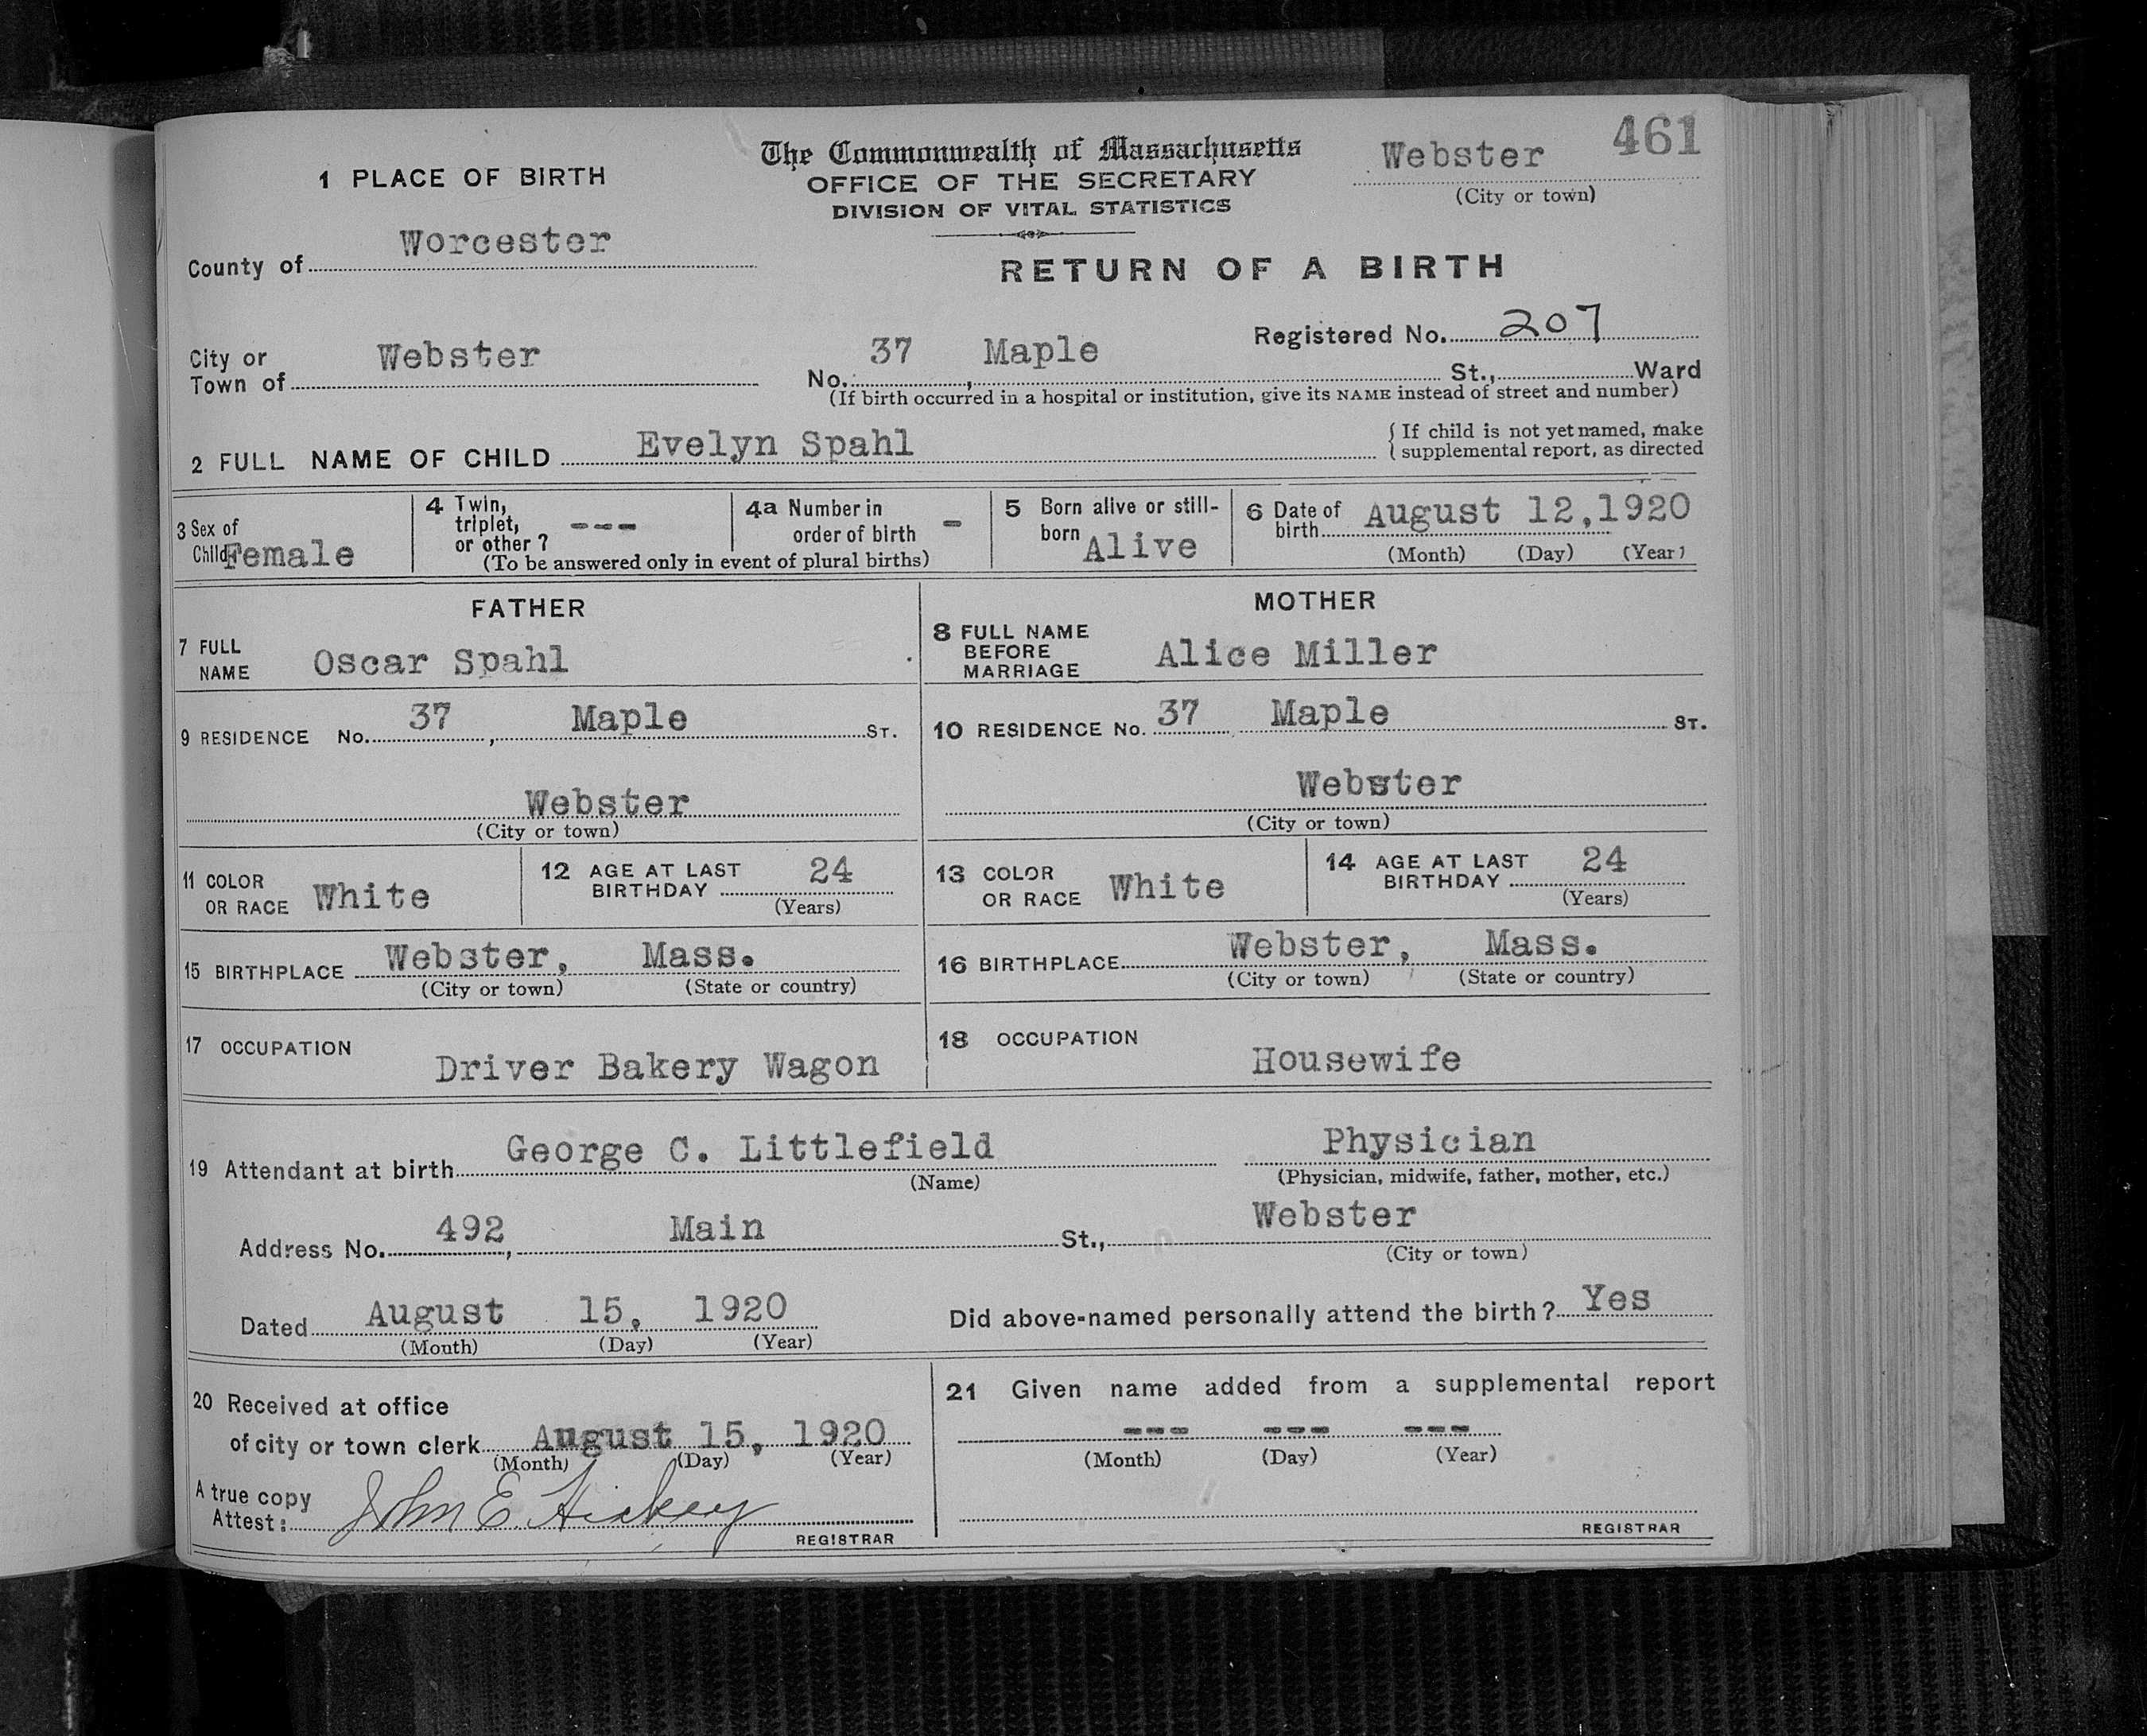 461
The Commonwealth of Massachusetts
Webster
1 PLACE OF BIRTH
OFFICE OF THE SECRETARY
(City or town)
DIVISION OF VITAL STATISTICS
County of Worcester
RETURN OF A BIRTH
Registered No. 207
City or Town of Webster
No. 37, Maple St., Ward
(If birth occurred in a hospital or institution, give its NAME instead of street and number)
2 FULL NAME OF CHILD Evelyn Spahl
{If child is not yet named, make
supplemental report, as directed
3 Sex of Child Female
4 Twin, triplet, or other? ---
4a Number in order of birth -
(To be answered only in event of plural births)
5 Born alive or still-born Alive
6 Date of birth August 12, 1920
(Month) (Day) (Year)
FATHER
MOTHER
7 FULL NAME Oscar Spahl
8 FULL NAME BEFORE MARRIAGE Alice Miller
9 RESIDENCE No. 37, Maple ST.
10 RESIDENCE No. 37, Maple ST.
Webster
(City or town)
Webster
(City or town)
11 COLOR OR RACE White
12 AGE AT LAST BIRTHDAY 24
(Years)
13 COLOR OR RACE White
14 AGE AT LAST BIRTHDAY 24
(Years)
15 BIRTHPLACE Webster, Mass.
(City or town) (State or country)
16 BIRTHPLACE Webster, Mass.
(City or town) (State or country)
17 OCCUPATION Driver Bakery Wagon
18 OCCUPATION Housewife
19 Attendant at birth George C. Littlefield Physician
(Name) (Physician, midwife, father, mother, etc.)
Address No. 492, Main St., Webster
(City or town)
Dated August 15, 1920 Did above-named personally attend the birth? Yes
(Month) (Day) (Year)
20 Received at office
of city or town clerk August 15, 1920
(Month) (Day) (Year)
A true copy
Attest: John E. Hickey
REGISTRAR
21 Given name added from a supplemental report
--- --- ---
(Month) (Day) (Year)
REGISTRAR